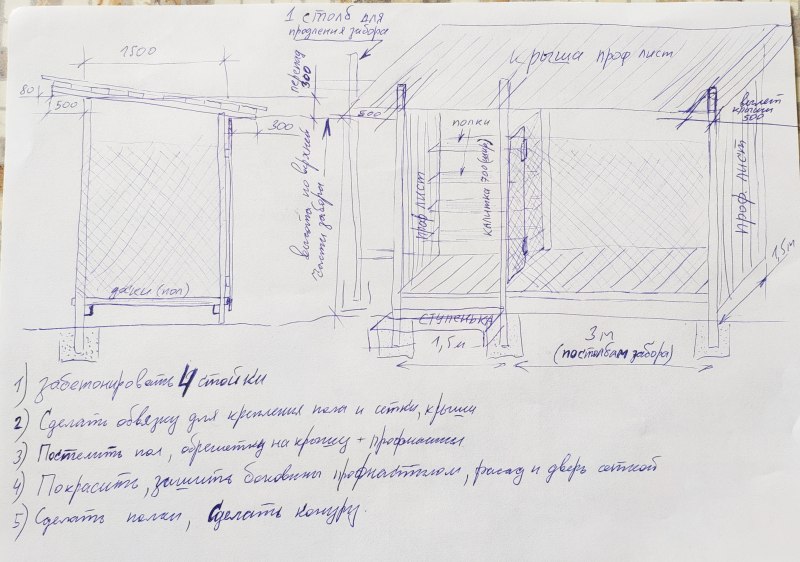 1 столб для
продления забора
1500
перепад
300
80
500
300
высота по верхней
части забора
доски (пол)
крыша проф лист
500
полки
проф лист
калитка 700 (шир)
вылет
крыши
500
проф. лист
1,5м
ступенька
1,5м
3м
(по столбам забора)
1) Забетонировать 4 стойки
2) Сделать обвязку для крепления пола и сетки, крыши
3) Постелить пол, обрешетку на крышу +
4) Покрасить, зашить боковины профнастилом, фасад и дверь сеткой
5) Сделать полки, Сделать конуру.